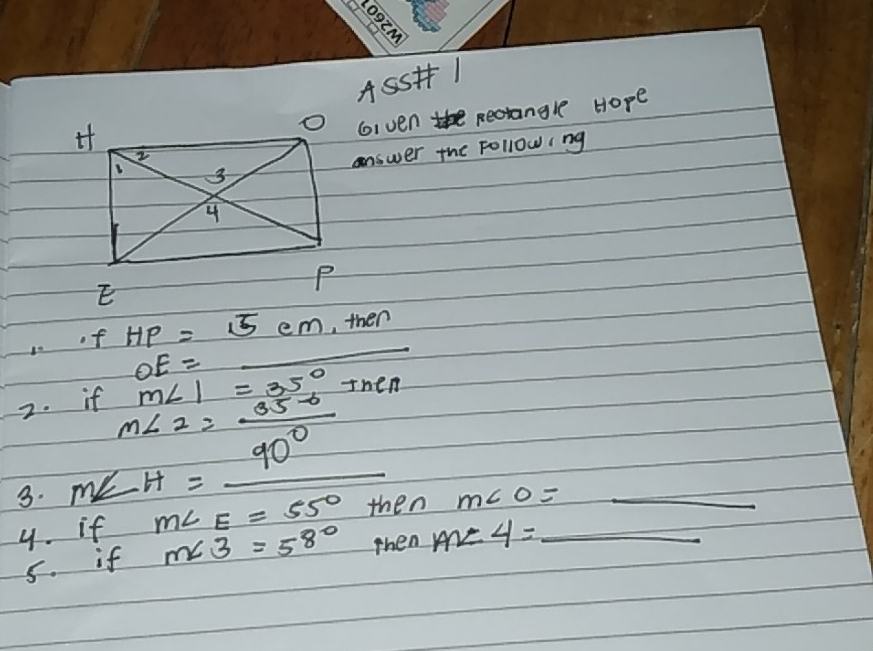 W2601
ASS# 1
Given the Rectangle Hope
answer the Following
H
O
2
1
3
4
E
P
1. if HP = 15 cm, then
OE =
2. if m∠1 = 35° then
m∠2 = 35°
3. m∠H = 90°
4. if m∠E = 55° then m∠O =
5. if m∠3 = 58° then m∠4 =